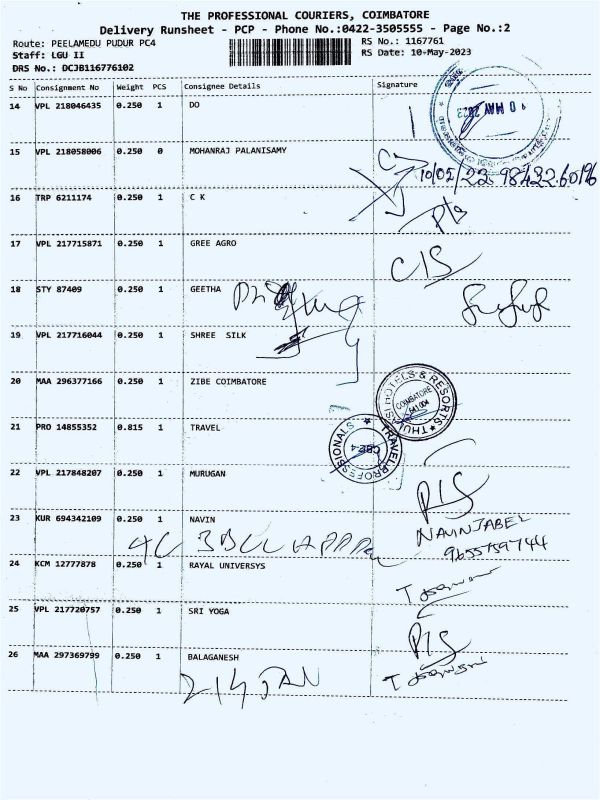 THE PROFESSIONAL COURIERS, COIMBATORE
Delivery Runsheet - PCP - Phone No.:0422-3505555 - Page No.:2
Route: PEELAMEDU PUDUR PC4
RS No.: 1167761
Staff: LGU II
RS Date: 10-May-2023
DRS No.: DCJB116776102
S No Consignment No Weight PCS Consignee Details Signature
14 VPL 218046435 0.250 1 DO
10 MAY 2023
15 VPL 218058006 0.250 0 MOHANRAJ PALANISAMY
10/05/23 98432 60196
16 TRP 6211174 0.250 1 C K
17 VPL 217715871 0.250 1 GREE AGRO
C/S
18 STY 87409 0.250 1 GEETHA
19 VPL 217716044 0.250 1 SHREE SILK
20 MAA 296377166 0.250 1 ZIBE COIMBATORE
THULASI HOTELS & RESORTS
COIMBATORE
641 004
21 PRO 14855352 0.815 1 TRAVEL
TRAVEL PROFESSIONALS
CBE-4
22 VPL 217848207 0.250 1 MURUGAN
P/S
23 KUR 694342109 0.250 1 NAVIN
NAVIN JABEL
9655759744
24 KCM 12777878 0.250 1 RAYAL UNIVERSYS
25 VPL 217720757 0.250 1 SRI YOGA
P/S
26 MAA 297369799 0.250 1 BALAGANESH